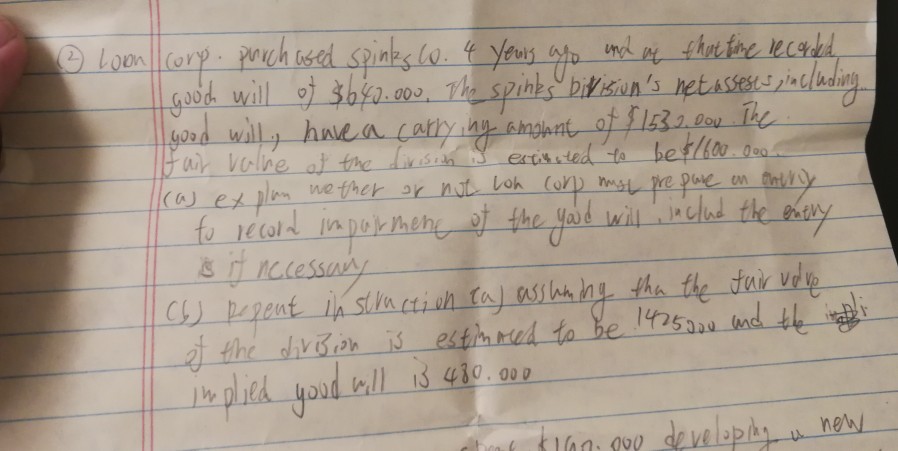 ② Loon Corp. purchased spinks Co. 4 years ago and at that time recorded
good will of $640.000. The spinks bivision's net assess, including
good will, have a carrying amount of $1532.000. The
fair value of the division is estimated to be $1600.000
(a) explan wether or not Loh Corp must prepare an entry
to record impairment of the good will, includ the entry
if nccessary
(b) Repeat instruction (a) assuming tha the fair valve
of the division is estimated to be 1425000 and the
implied good will is 480.000
$160.000 developing a new